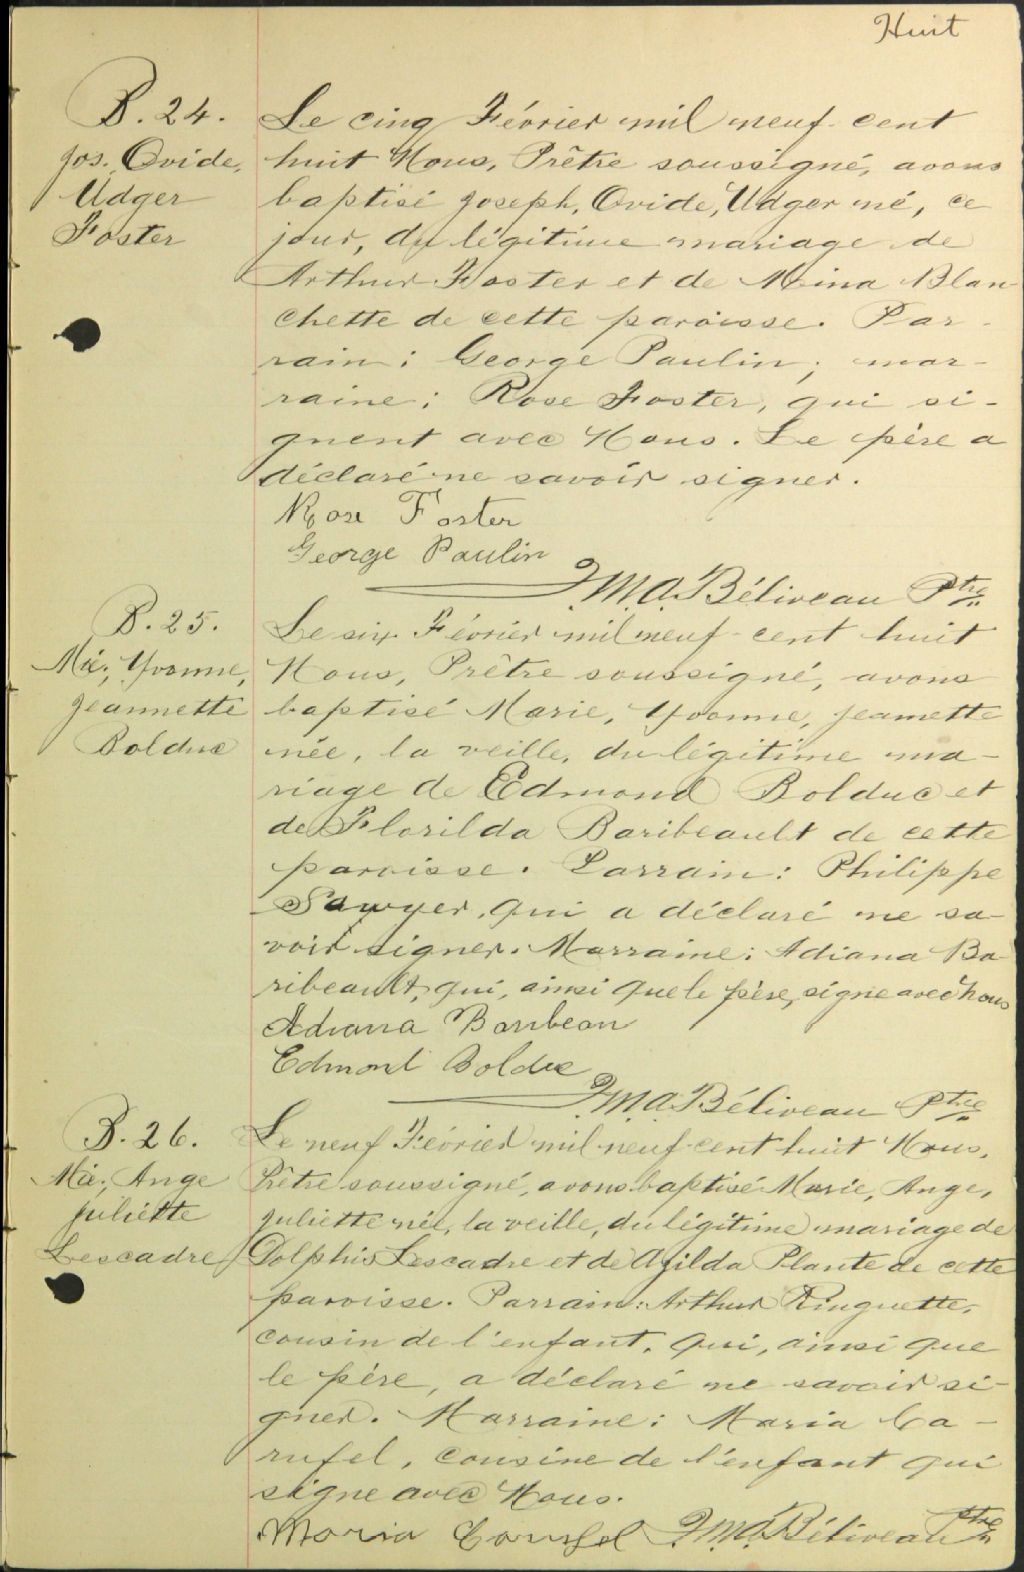 Huit
B. 24.
Jos. Ovide,
Udger
Foster
Le cinq Février mil neuf cent
huit Nous, Prêtre soussigné, avons
baptisé Joseph, Ovide, Udger né, ce
jour, du légitime mariage de
Arthur Foster et de Mina Blan-
chette de cette paroisse. Par-
rain: George Paulin; mar-
raine: Rose Foster, qui si-
gnent avec Nous. Le père a
déclaré ne savoir signer.
Rose Foster
George Paulin
J.M.A. Béliveau Ptre
B. 25.
Mie, Yvonne,
Jeannette
Bolduc
Le six Février mil neuf cent huit
Nous, Prêtre soussigné, avons
baptisé Marie, Yvonne, Jeannette
née, la veille, du légitime ma-
riage de Edmond Bolduc et
de Florilda Baribeault de cette
paroisse. Parrain: Philippe
Sawyer, qui a déclaré ne sa-
voir signer. Marraine: Adiana Ba-
ribeault, qui, ainsi que le père, signe avec Nous
Adiana Baribeau
Edmont Bolduc
J.M.A. Béliveau Ptre
B. 26.
Mie, Ange
Juliette
Lescadre
Le neuf Février mil neuf cent huit Nous,
Prêtre soussigné, avons baptisé Marie, Ange,
Juliette née, la veille, du légitime mariage de
Dolphis Lescadre et de Azilda Plante de cette
paroisse. Parrain: Arthur Ringuette,
cousin de l'enfant, qui, ainsi que
le père, a déclaré ne savoir si-
gner. Marraine: Maria Ca-
rufel, cousine de l'enfant qui
signe avec Nous.
Maria Carufel J.M.A. Béliveau Ptre